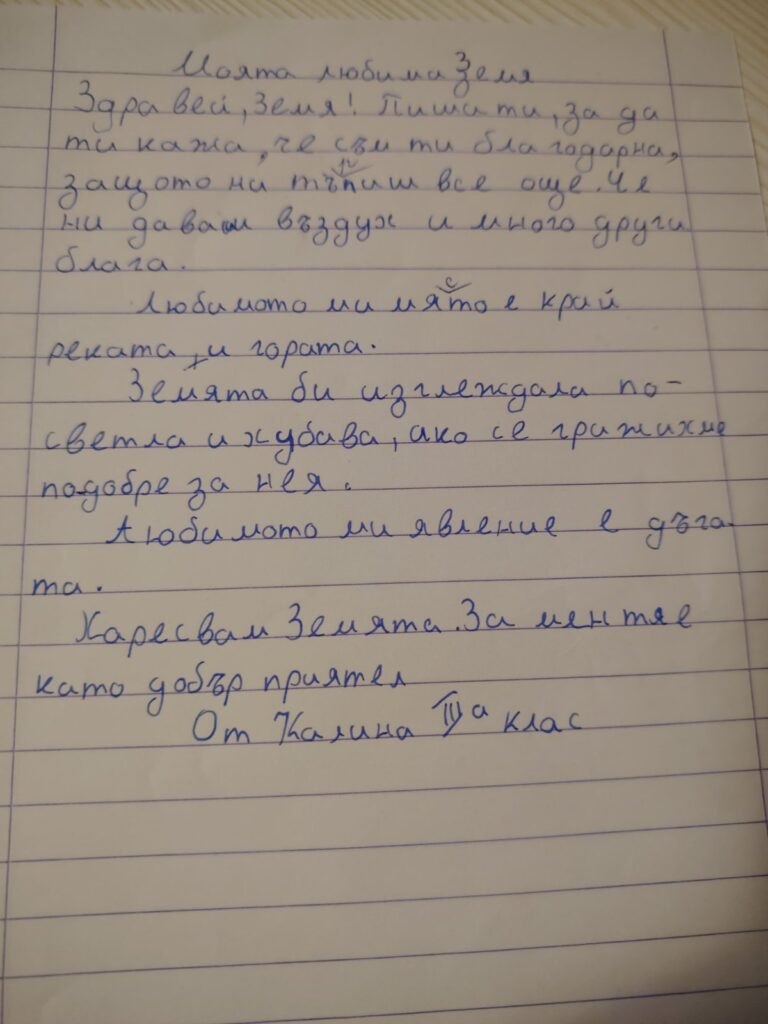 Моята любима Земя
Здравей, Земя! Пиша ти, за да
ти кажа, че съм ти благодарна,
защото ни търпиш все още. Че
ни даваш въздух и много други
блага.
Любимото ми място е край
реката, и гората.
Земята би изглеждала по-
светла и хубава, ако се грижихме
подобре за нея.
Любимото ми явление е дъга-
та.
Харесвам Земята. За мен тя е
като добър приятел
От Калина IIIа клас